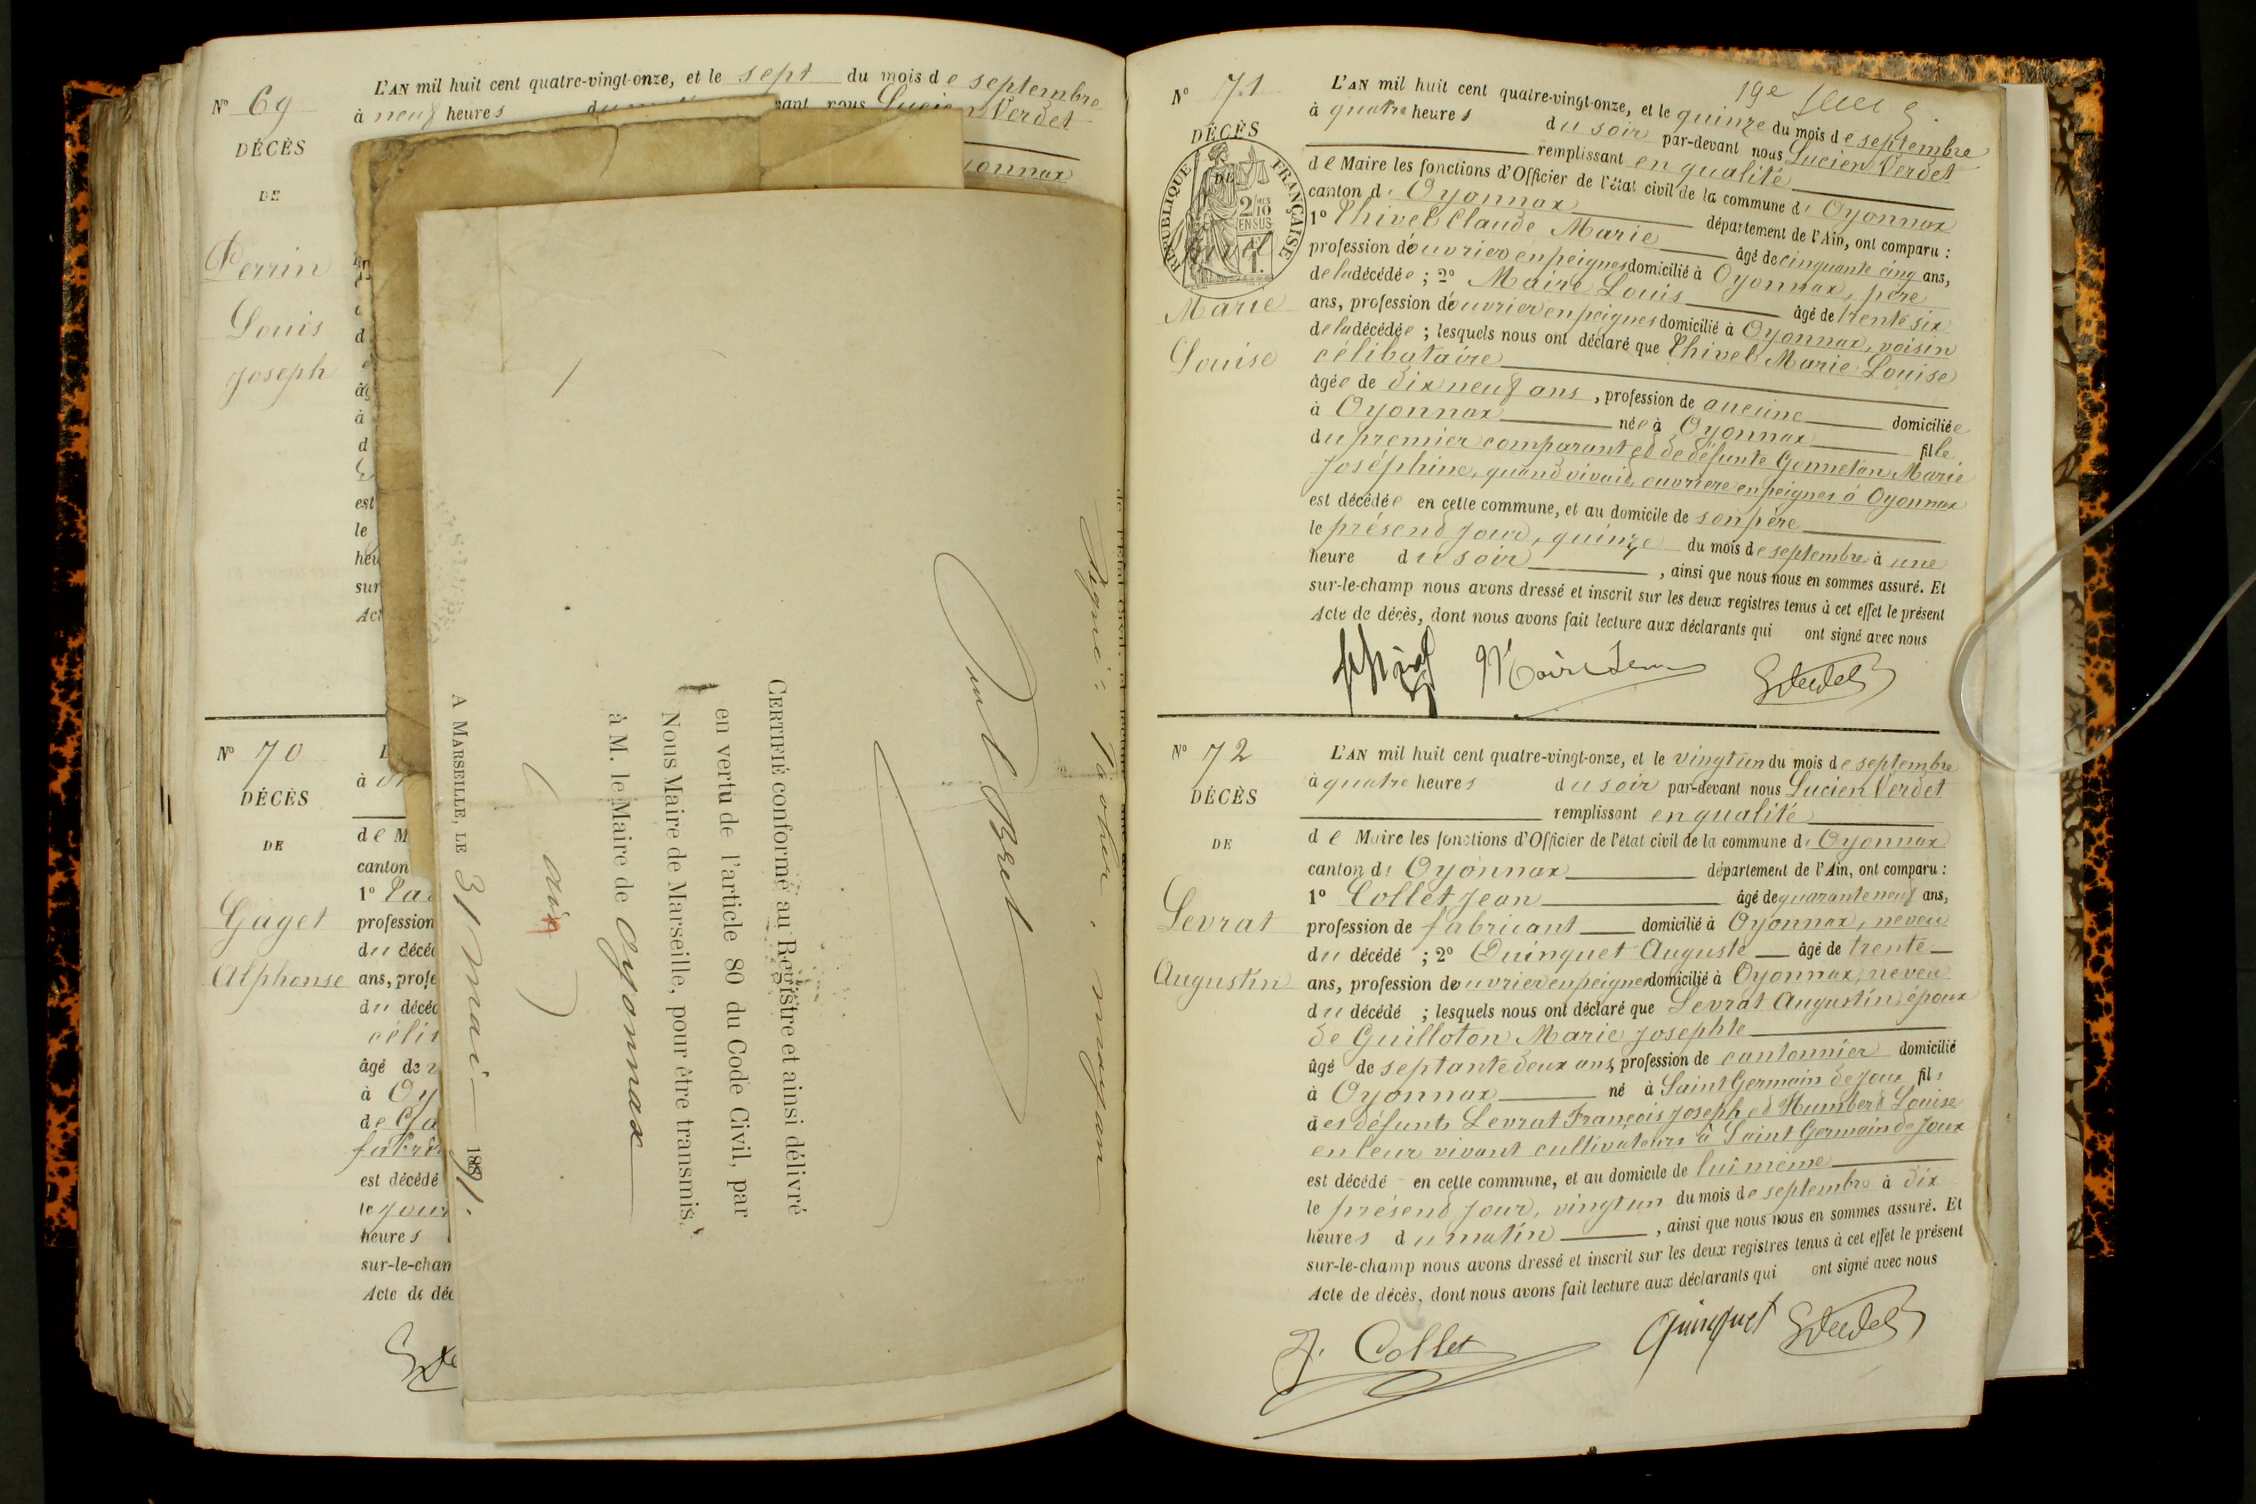 N° 69
DÉCÈS
DE
Perrin
Louis
Joseph
L'AN mil huit cent quatre-vingt-onze, et le sept du mois de septembre
à neuf heures nous Lucien Verdet
N° 70
DÉCÈS
DE
Gaget
Alphonse
de M
canton
profession
du décéd
ans, profe
du décéd
âgé de
à Oy
est décédé
le jour
heures
sur-le-cham
Acte de déc
Signé: Pavolier, moyan
CERTIFIÉ conforme au Registre et ainsi délivré
en vertu de l'article 80 du Code Civil, par
Nous Maire de Marseille, pour être transmis,
à M. le Maire de Oyonnax
(ain)
A MARSEILLE, LE 31 mai 1891.
19e
N° 71
DÉCÈS
DE
RÉPUBLIQUE FRANÇAISE
Thivel
Marie
Louise
L'AN mil huit cent quatre-vingt-onze, et le quinze du mois de septembre
à quatre heures du soir par-devant nous Lucien Verdet
remplissant en qualité
de Maire les fonctions d'Officier de l'état civil de la commune d' Oyonnax
canton d' Oyonnax département de l'Ain, ont comparu :
1° Thivel Claude Marie âgé de cinquante cinq ans,
profession d'ouvrier en peignes domicilié à Oyonnax, père
de la décédée ; 2° Maire Louis âgé de trente six
ans, profession d'ouvrier en peignes domicilié à Oyonnax, voisin
de la décédée ; lesquels nous ont déclaré que Thivel Marie Louise
célibataire
âgée de dix neuf ans, profession de aucune domiciliée
à Oyonnax née à Oyonnax fille
du premier comparant et de défunte Gonneton Marie
Joséphine, quand vivait, ouvrière en peignes à Oyonnax
est décédée en cette commune, et au domicile de son père
le présent jour, quinze du mois de septembre à une
heure du soir, ainsi que nous nous en sommes assuré. Et
sur-le-champ nous avons dressé et inscrit sur les deux registres tenus à cet effet le présent
Acte de décès, dont nous avons fait lecture aux déclarants qui ont signé avec nous
N° 72
DÉCÈS
DE
Levrat
Augustin
L'AN mil huit cent quatre-vingt-onze, et le vingt un du mois de septembre
à quatre heures du soir par-devant nous Lucien Verdet
remplissant en qualité
de Maire les fonctions d'Officier de l'état civil de la commune d' Oyonnax
canton d' Oyonnax département de l'Ain, ont comparu :
1° Collet Jean âgé de quarante neuf ans,
profession de fabricant domicilié à Oyonnax, neveu
du décédé ; 2° Quinquet Auguste âgé de trente
ans, profession d'ouvrier en peignes domicilié à Oyonnax, neveu
du décédé ; lesquels nous ont déclaré que Levrat Augustin époux
de Guilloton Marie Josephte
âgé de septante deux ans, profession de cantonnier domicilié
à Oyonnax né à Saint Germain de Joux fils
des défunts Levrat François Joseph et Humbert Louise
en leur vivant cultivateurs à Saint Germain de Joux
est décédé en cette commune, et au domicile de lui même
le présent jour, vingt un du mois de septembre à dix
heures du matin, ainsi que nous nous en sommes assuré. Et
sur-le-champ nous avons dressé et inscrit sur les deux registres tenus à cet effet le présent
Acte de décès, dont nous avons fait lecture aux déclarants qui ont signé avec nous
J. Collet Quinquet